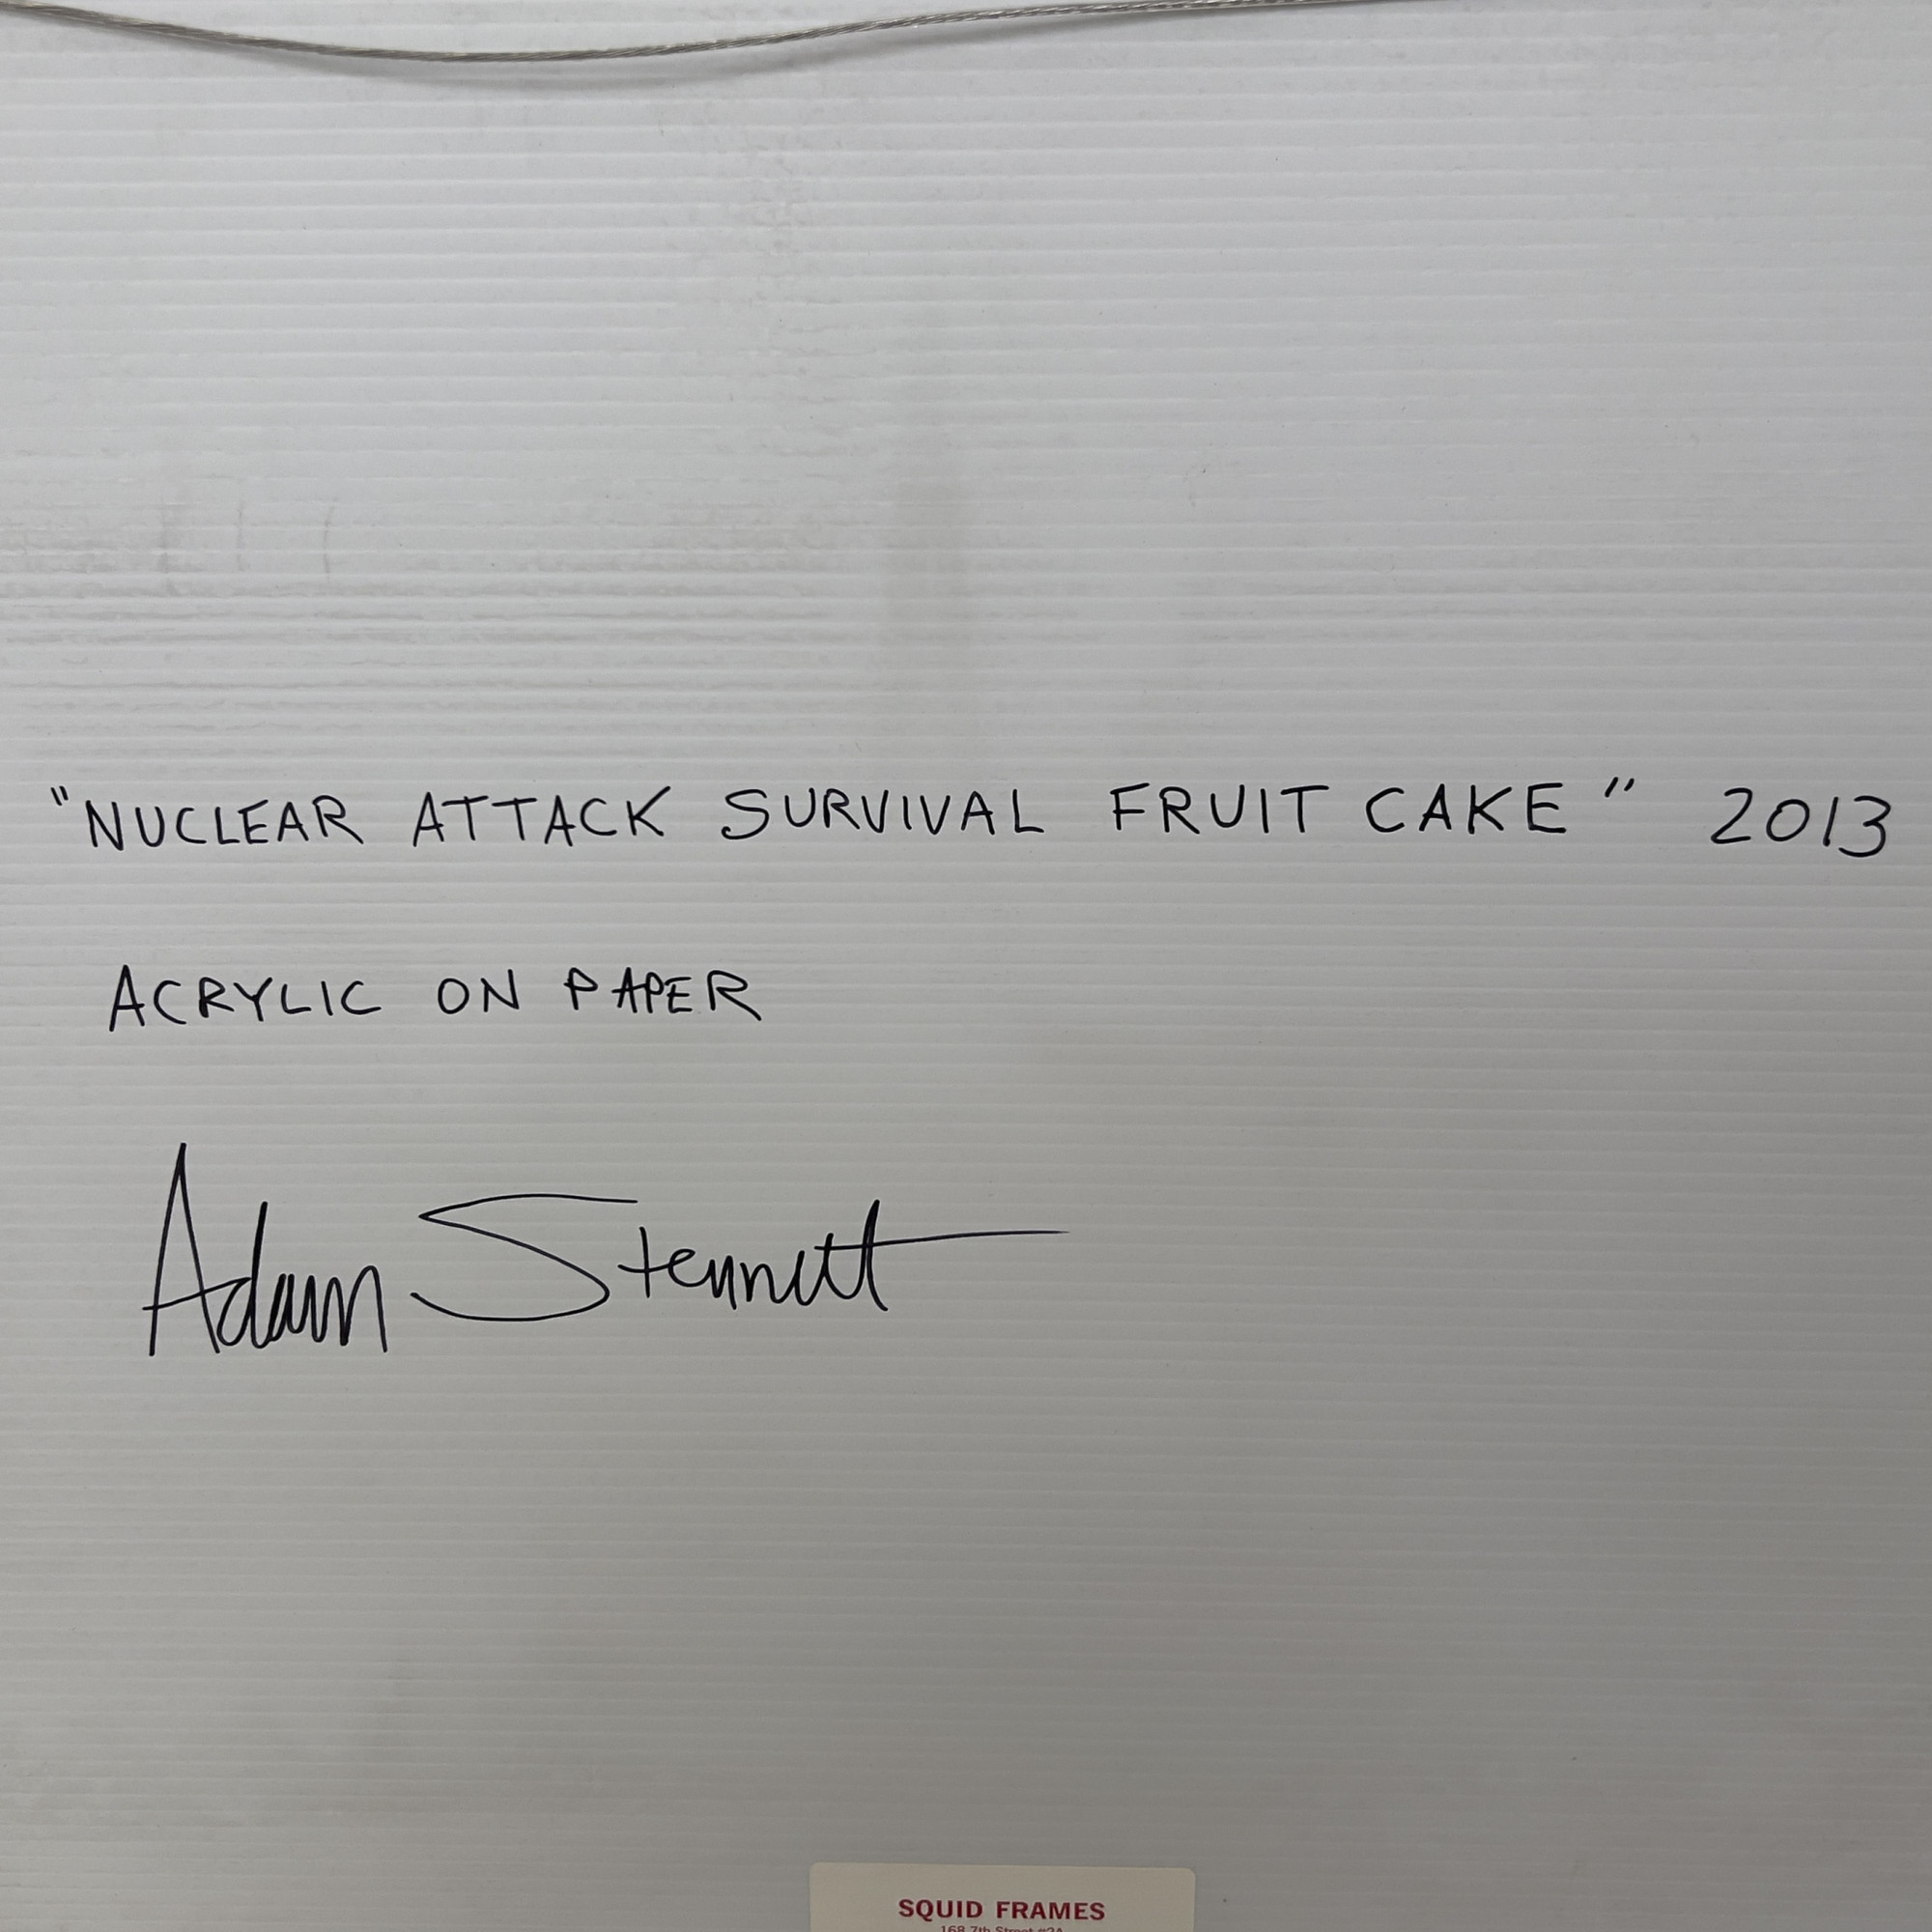 "NUCLEAR ATTACK SURVIVAL FRUIT CAKE" 2013
ACRYLIC ON PAPER
Adam Stennett
SQUID FRAMES
168 7th Street #2A